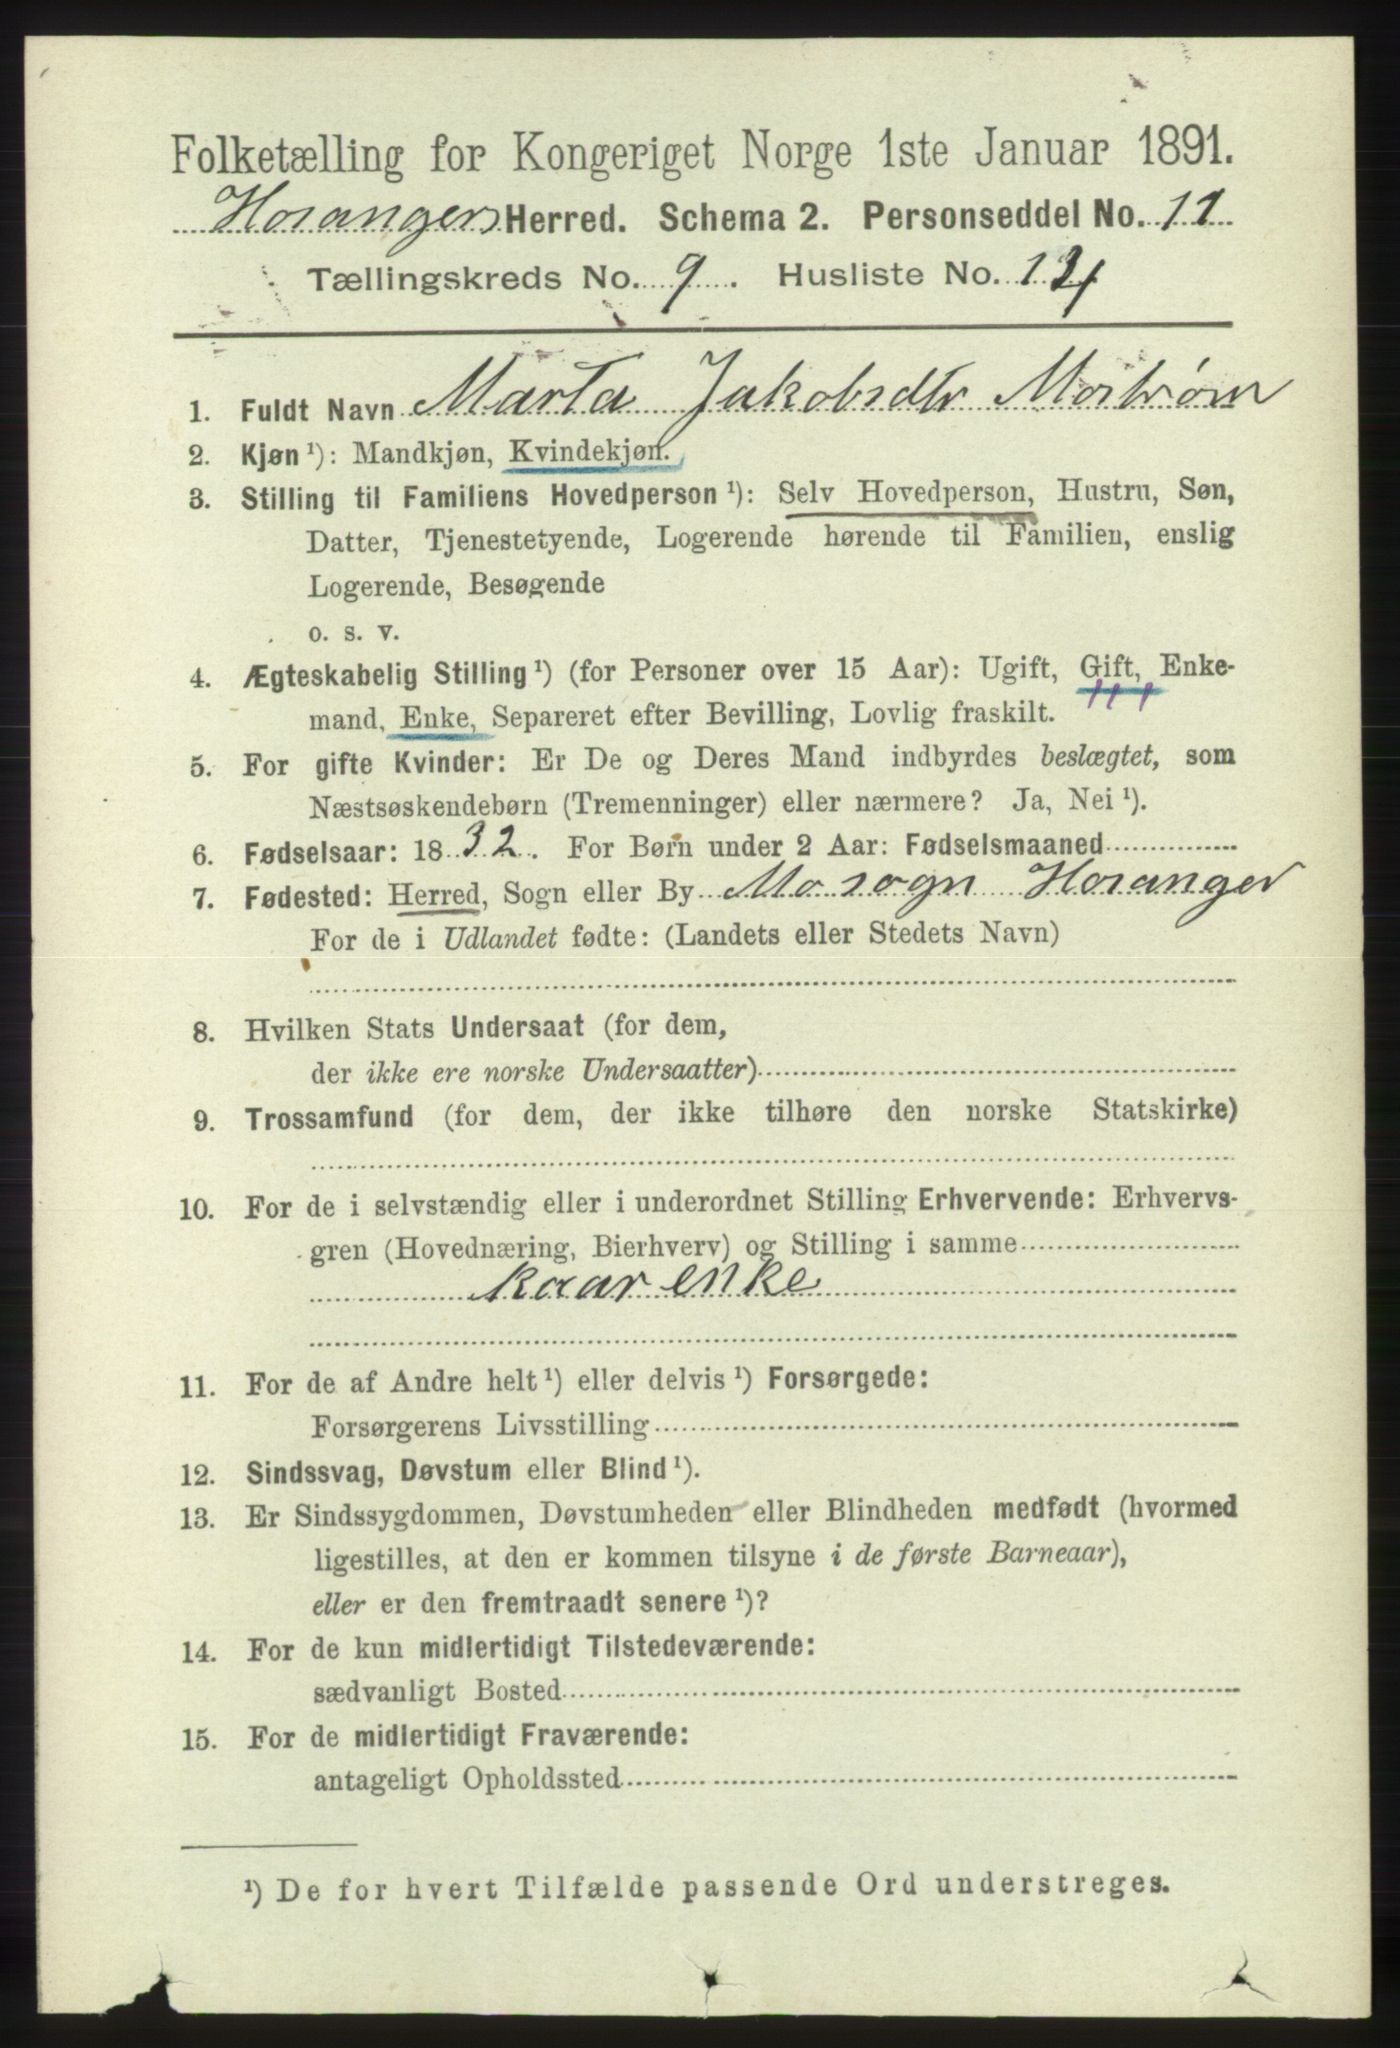 Folketælling for Kongeriget Norge 1ste Januar 1891.
Hosangers Herred. Schema 2. Personseddel No. 11
Tællingskreds No. 9. Husliste No.
1. Fuldt Navn Marta Jakobsdtr Mostrøm
2. Kjøn ¹): Mandkjøn, Kvindekjøn.
3. Stilling til Familiens Hovedperson ¹): Selv Hovedperson, Hustru, Søn,
Datter, Tjenestetyende, Logerende hørende til Familien, enslig
Logerende, Besøgende
o. s. v.
4. Ægteskabelig Stilling ¹) (for Personer over 15 Aar): Ugift, Gift, Enke-
mand, Enke, Separeret efter Bevilling, Lovlig fraskilt.
5. For gifte Kvinder: Er De og Deres Mand indbyrdes beslægtet, som
Næstsøskendebørn (Tremenninger) eller nærmere? Ja, Nei ¹).
6. Fødselsaar: 1832. For Børn under 2 Aar: Fødselsmaaned
7. Fødested: Herred, Sogn eller By Mo sogn Hosanger
For de i Udlandet fødte: (Landets eller Stedets Navn)
8. Hvilken Stats Undersaat (for dem,
der ikke ere norske Undersaatter)
9. Trossamfund (for dem, der ikke tilhøre den norske Statskirke)
10. For de i selvstændig eller i underordnet Stilling Erhvervende: Erhvervs-
gren (Hovednæring, Bierhverv) og Stilling i samme
kaarenke
11. For de af Andre helt ¹) eller delvis ¹) Forsørgede:
Forsørgerens Livsstilling
12. Sindssvag, Døvstum eller Blind ¹).
13. Er Sindssygdommen, Døvstumheden eller Blindheden medfødt (hvormed
ligestilles, at den er kommen tilsyne i de første Barneaar),
eller er den fremtraadt senere ¹)?
14. For de kun midlertidigt Tilstedeværende:
sædvanligt Bosted
15. For de midlertidigt Fraværende:
antageligt Opholdssted
¹) De for hvert Tilfælde passende Ord understreges.